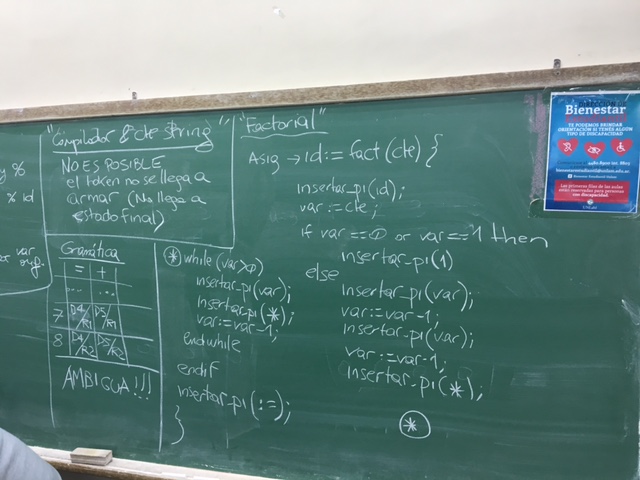 y %
% id
var
"Compilador & cte string"
NO ES POSIBLE
el token no se llega a
armar (No llega a
estado final)
Gramática
= +
... ...
7 D4/R1 D5/R1
8 D4/R2 D5/R2
AMBIGUA!!!
"Factorial"
Asig → id := fact(cte) {
insertar_pi(id);
var := cte;
if var == 0 or var == 1 then
insertar_pi(1)
else
insertar_pi(var);
var := var-1;
insertar_pi(var);
var := var-1;
insertar_pi(*);
*
* while (var>0)
insertar_pi(var);
insertar_pi(*);
var := var-1;
endwhile
endif
insertar_pi(:=);
}
Bienestar
TE PODEMOS BRINDAR
ORIENTACIÓN SI TENÉS ALGÚN
TIPO DE DISCAPACIDAD
Las primeras filas de las aulas
están reservadas para personas
con discapacidad.